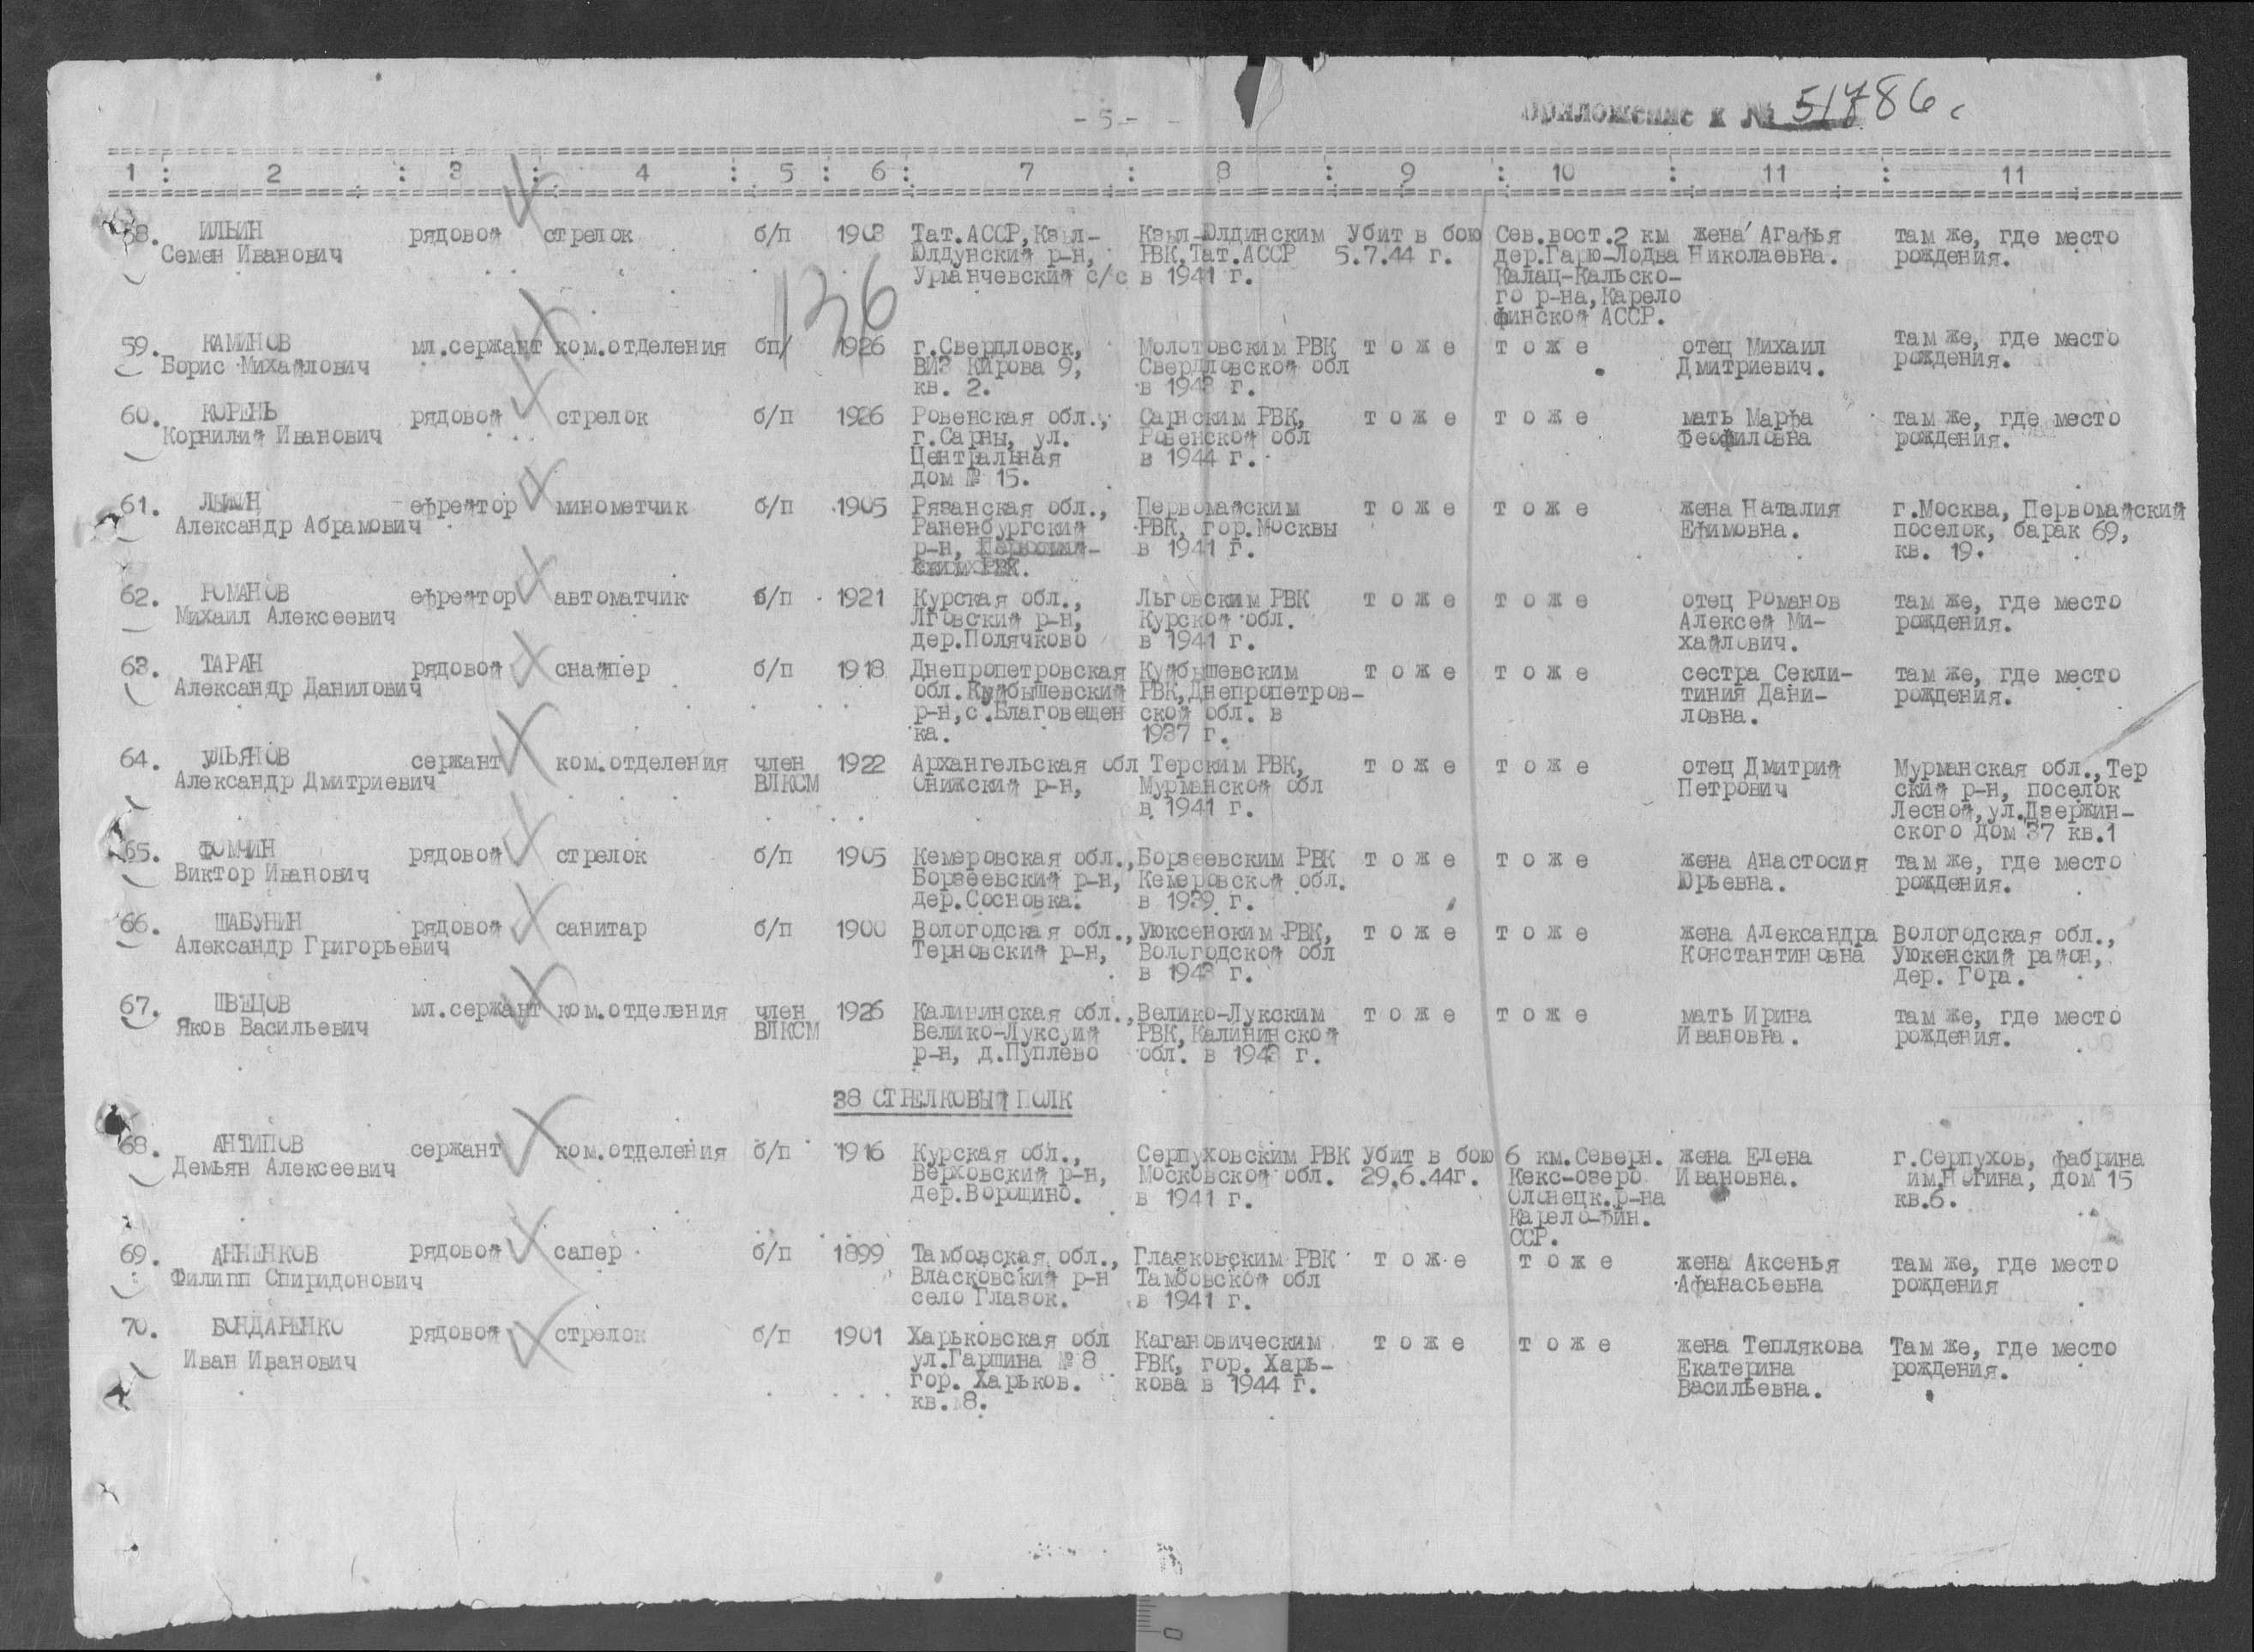 - 5 -
приложение к № 51786с
1 : 2 : 3 : 4 : 5 : 6 : 7 : 8 : 9 : 10 : 11 : 11
58. ИЛЬИН рядовой стрелок б/п 1903 Тат.АССР,Кзыл- Кзыл-Юлдинским Убит в бою Сев.вост.2 км жена Агафья там же, где место
Семен Иванович Юлдунский р-н, РВК,Тат.АССР 5.7.44 г. дер.Гарю-Лодва Николаевна. рождения.
Урманчевский с/с в 1941 г. Калац-Кальско-
го р-на,Карело
финской АССР.
136
59. КАМИНОВ мл.сержант ком.отделения бп/ 1926 г.Свердловск, Молотовским РВК т о ж е т о ж е отец Михаил там же, где место
Борис Михайлович ВИЗ Кирова 9, Свердловской обл Дмитриевич. рождения.
кв. 2. в 1943 г.
60. КОРЕНЬ рядовой стрелок б/п 1926 Ровенская обл., Сарнским РВК, т о ж е т о ж е мать Марфа там же, где место
Корнилий Иванович г.Сарны, ул. Ровенской обл Феофиловна рождения.
Центральная в 1944 г.
дом № 15.
61. ефрейтор минометчик б/п 1905 Рязанская обл., Первомайским т о ж е т о ж е жена Наталия г.Москва, Первомайский
Александр Абрамович Раненбургский РВК, гор.Москвы Ефимовна. поселок, барак 69,
р-н, в 1941 г. кв. 19.
62. РОМАНОВ ефрейтор автоматчик б/п 1921 Курская обл., Льговским РВК т о ж е т о ж е отец Романов там же, где место
Михаил Алексеевич Лговский р-н, Курской обл. Алексей Ми- рождения.
дер.Полячково в 1941 г. хайлович.
63. ТАРАН рядовой снайпер б/п 1918 Днепропетровская Куйбышевским т о ж е т о ж е сестра Секли- там же, где место
Александр Данилович обл.Куйбышевский РВК,Днепропетров- тиния Дани- рождения.
р-н,с.Благовещен ской обл. в ловна.
ка. 1937 г.
64. УЛЬЯНОВ сержант ком.отделения член 1922 Архангельская обл Терским РВК, т о ж е т о ж е отец Дмитрий Мурманская обл.,Тер
Александр Дмитриевич ВЛКСМ Онижский р-н, Мурманской обл Петрович ский р-н, поселок
в 1941 г. Лесной,ул.Дзержин-
ского дом 37 кв.1
65. ФОМЧИН рядовой стрелок б/п 1905 Кемеровская обл., Борзеевским РВК т о ж е т о ж е жена Анастосия там же, где место
Виктор Иванович Борзеевский р-н, Кемеровской обл. Юрьевна. рождения.
дер.Сосновка. в 1939 г.
66. ШАБУНИН рядовой санитар б/п 1900 Вологодская обл., Уюксенским РВК, т о ж е т о ж е жена Александра Вологодская обл.,
Александр Григорьевич Терновский р-н, Вологодской обл Константиновна Уюкенский район,
в 1943 г. дер. Гора.
67. ШВЕЦОВ мл.сержант ком.отделения член 1926 Калининская обл., Велико-Лукским т о ж е т о ж е мать Ирина там же, где место
Яков Васильевич ВЛКСМ Велико-Луксуий РВК,Калининской Ивановна. рождения.
р-н, д.Пуплево обл. в 1943 г.
38 СТРЕЛКОВЫЙ ПОЛК
68. АНТИПОВ сержант ком.отделения б/п 1916 Курская обл., Серпуховским РВК Убит в бою 6 км.Северн. жена Елена г.Серпухов, фабрина
Демьян Алексеевич Верховский р-н, Московской обл. 29.6.44г. Кекс-озеро Ивановна. им.Ногина, дом 15
дер.Ворощино. в 1941 г. Олонецк.р-на кв.6.
Карело-Фин.
ССР.
69. АННЕНКОВ рядовой сапер б/п 1899 Тамбовская обл., Глазковским РВК т о ж е т о ж е жена Аксенья там же, где место
Филипп Спиридонович Власковский р-н Тамбовской обл Афанасьевна рождения
село Глазок. в 1941 г.
70. БОНДАРЕНКО рядовой стрелок б/п 1901 Харьковская обл Кагановическим т о ж е т о ж е жена Теплякова Там же, где место
Иван Иванович ул.Гаршина №8 РВК, гор. Харь- Екатерина рождения.
гор. Харьков. кова в 1944 г. Васильевна.
кв. 8.